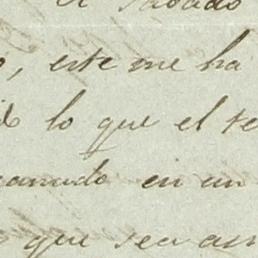 el sabado
, este me ha
lo que el te
en un
que sea asi